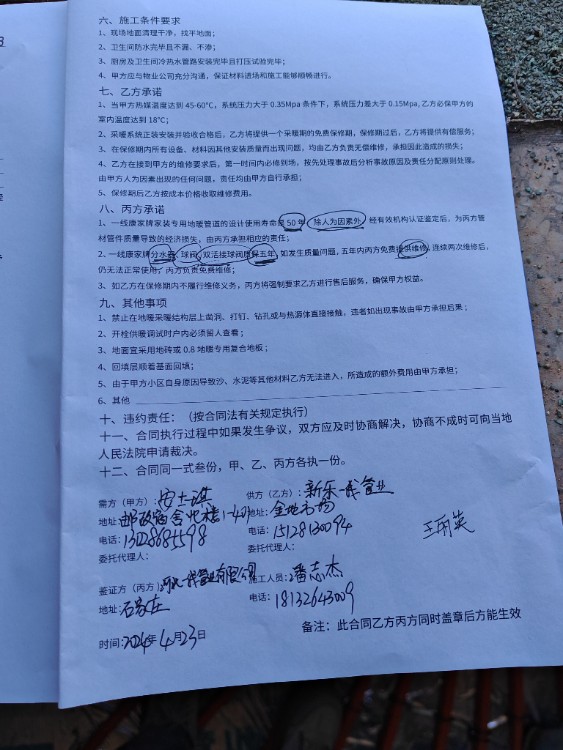 六、施工条件要求
1、现场地面清理干净，找平地面；
2、卫生间防水完毕且不漏、不渗；
3、厨房及卫生间冷热水管路安装完毕且打压试验完毕；
4、甲方应与物业公司充分沟通，保证材料进场和施工能够顺畅进行。
七、乙方承诺
1、当甲方热媒温度达到45-60℃，系统压力大于0.35Mpa条件下，系统压力差大于0.15Mpa,乙方必保甲方的
室内温度达到18℃；
2、采暖系统正装安装并验收合格后，乙方将提供一个采暖期的免费保修期，保修期过后，乙方将提供有偿服务；
3、在保修期内所有设备、材料因其他安装质量而出现问题，均由乙方负责无偿维修，承担因此造成的损失；
4、乙方在接到甲方的维修要求后，第一时间内必维到场，按先处理事故后分析事故原因及责任分配原则处理。
由甲方人为因素出现的任何问题，责任均由甲方自行承担；
5、保修期后乙方按成本价格收取维修费用。
八、丙方承诺
1、一线康家牌家装专用地暖管道的设计使用寿命是50年，除人为因素外，经有效机构认证鉴定后，为丙方管
材管件质量导致的经济损失，由丙方承担相应的责任；
2、一线康家牌分水器、球阀、双活接球阀质保五年，如发生质量问题，五年内丙方免费提供维修，连续两次维修后，
仍无法正常使用，丙方负责免费维修；
3、如乙方在保修期内不履行维修义务，丙方将强制要求乙方进行售后服务，确保甲方权益。
九、其他事项
1、禁止在地暖采暖结构层上凿洞、打钉、钻孔或与热源体直接接触，违者如出现事故由甲方承担后果；
2、开栓供暖调试时户内必须留人查看；
3、地面宜采用地砖或0.8地暖专用复合地板；
4、回填层顺着基面回填；
5、由于甲方小区自身原因导致沙、水泥等其他材料乙方无法进入，所造成的额外费用由甲方承担；
6、其他
十、违约责任：（按合同法有关规定执行）
十一、合同执行过程中如果发生争议，双方应及时协商解决，协商不成时可向当地
人民法院申请裁决。
十二、合同同一式叁份，甲、乙、丙方各执一份。
需方（甲方）：安士淇 供方（乙方）：新乐一线管业
地址：邮政宿舍北楼1-401 地址：金地市场
电话： 电话：15128130094
委托代理人： 委托代理人：
鉴证方（丙方）：河北一线管业有限公司 施工人员：潘志杰
地址：石家庄 电话：18132643009
时间：2024年4月23日
备注：此合同乙方丙方同时盖章后方能生效